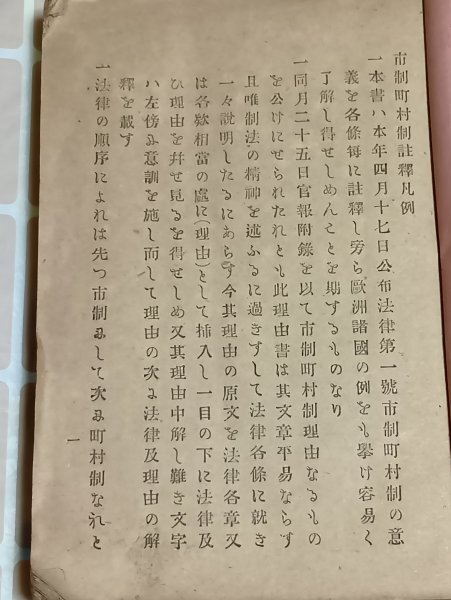 市制町村制註釋凡例
一本書ハ本年四月十七日公布法律第一號市制町村制の意
義を各條每に註釋し旁ら歐洲諸國の例をも擧け容易く
了解し得せしめんことを期するものなり
一同月二十五日官報附錄を以て市制町村制理由なるもの
を公けにせられたれとも此理由書は其文章平易ならす
且唯制法の精神を述ふるに過きすして法律各條に就き
一々說明したるにあらす今其理由の原文を法律各章又
は各欵相當の處に(理由)として揷入し一目の下に法律及
ひ理由を幷せ見るを得せしめ又其理由中解し難き文字
ハ左傍に意訓を施し而して理由の次に法律及理由の解
釋を載す
一法律の順序によれは先つ市制にして次に町村制なれと
一